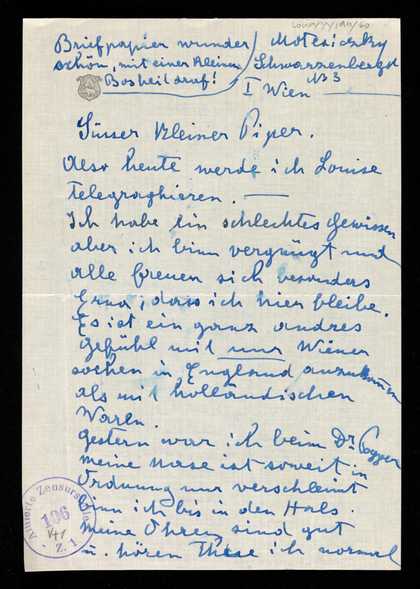 Briefpapier wunder
schön, mit einer kleinen
Bosheit drauf!
Motesiczky
Schwarzenbergpl
No 3
I Wien
Süsser kleiner Piper.
Also heute werde ich Louise
telegraphieren. —
Ich habe ein schlechtes Gewissen
aber ich binn vergnügt und
alle freuen sich besonders
Erna, dass ich hier bleibe.
Es ist ein ganz andres
gefühl mit nur Wiener
sachen in England anzukommen
als mit holländischen
Waren.
Gestern war ich beim Dr Popper
meine Nase ist soweit in
Ordnung nur verschleimt
binn ich bis in den Hals.
Meine Ohren sind gut
u. hören These ich normal
Alliierte Zensurstelle
106
Z. 1